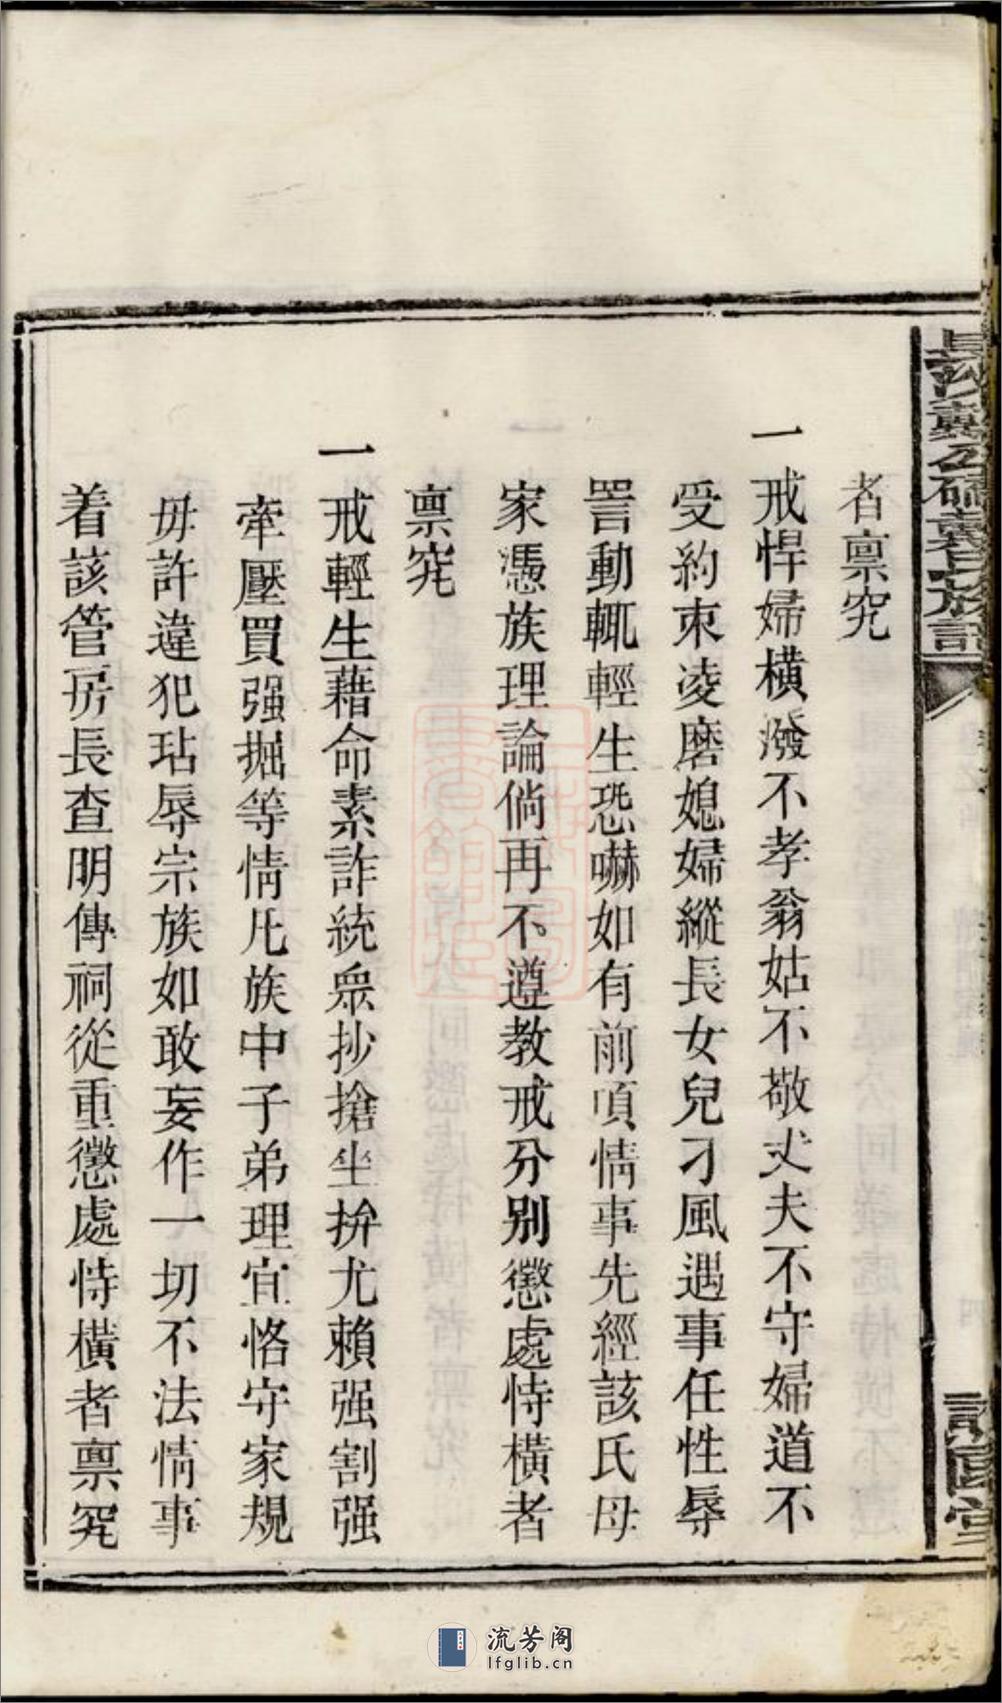 長沙戴公
族譜
者禀究
一戒悍婦橫潑不孝翁姑不敬丈夫不守婦道不
受約束凌磨媳婦縱長女兒刁風遇事任性辱
詈動輒輕生恐嚇如有前項情事先經該氏母
家憑族理論倘再不遵教戒分别懲處恃橫者
禀究
一戒輕生藉命素詐統衆抄搶坐拚尤賴强割强
牽壓買强掘等情凡族中子弟理宜恪守家規
毋許違犯玷辱宗族如敢妄作一切不法情事
着該管房長查明傳祠從重懲處恃橫者禀究
流芳阁
lfglib.cn